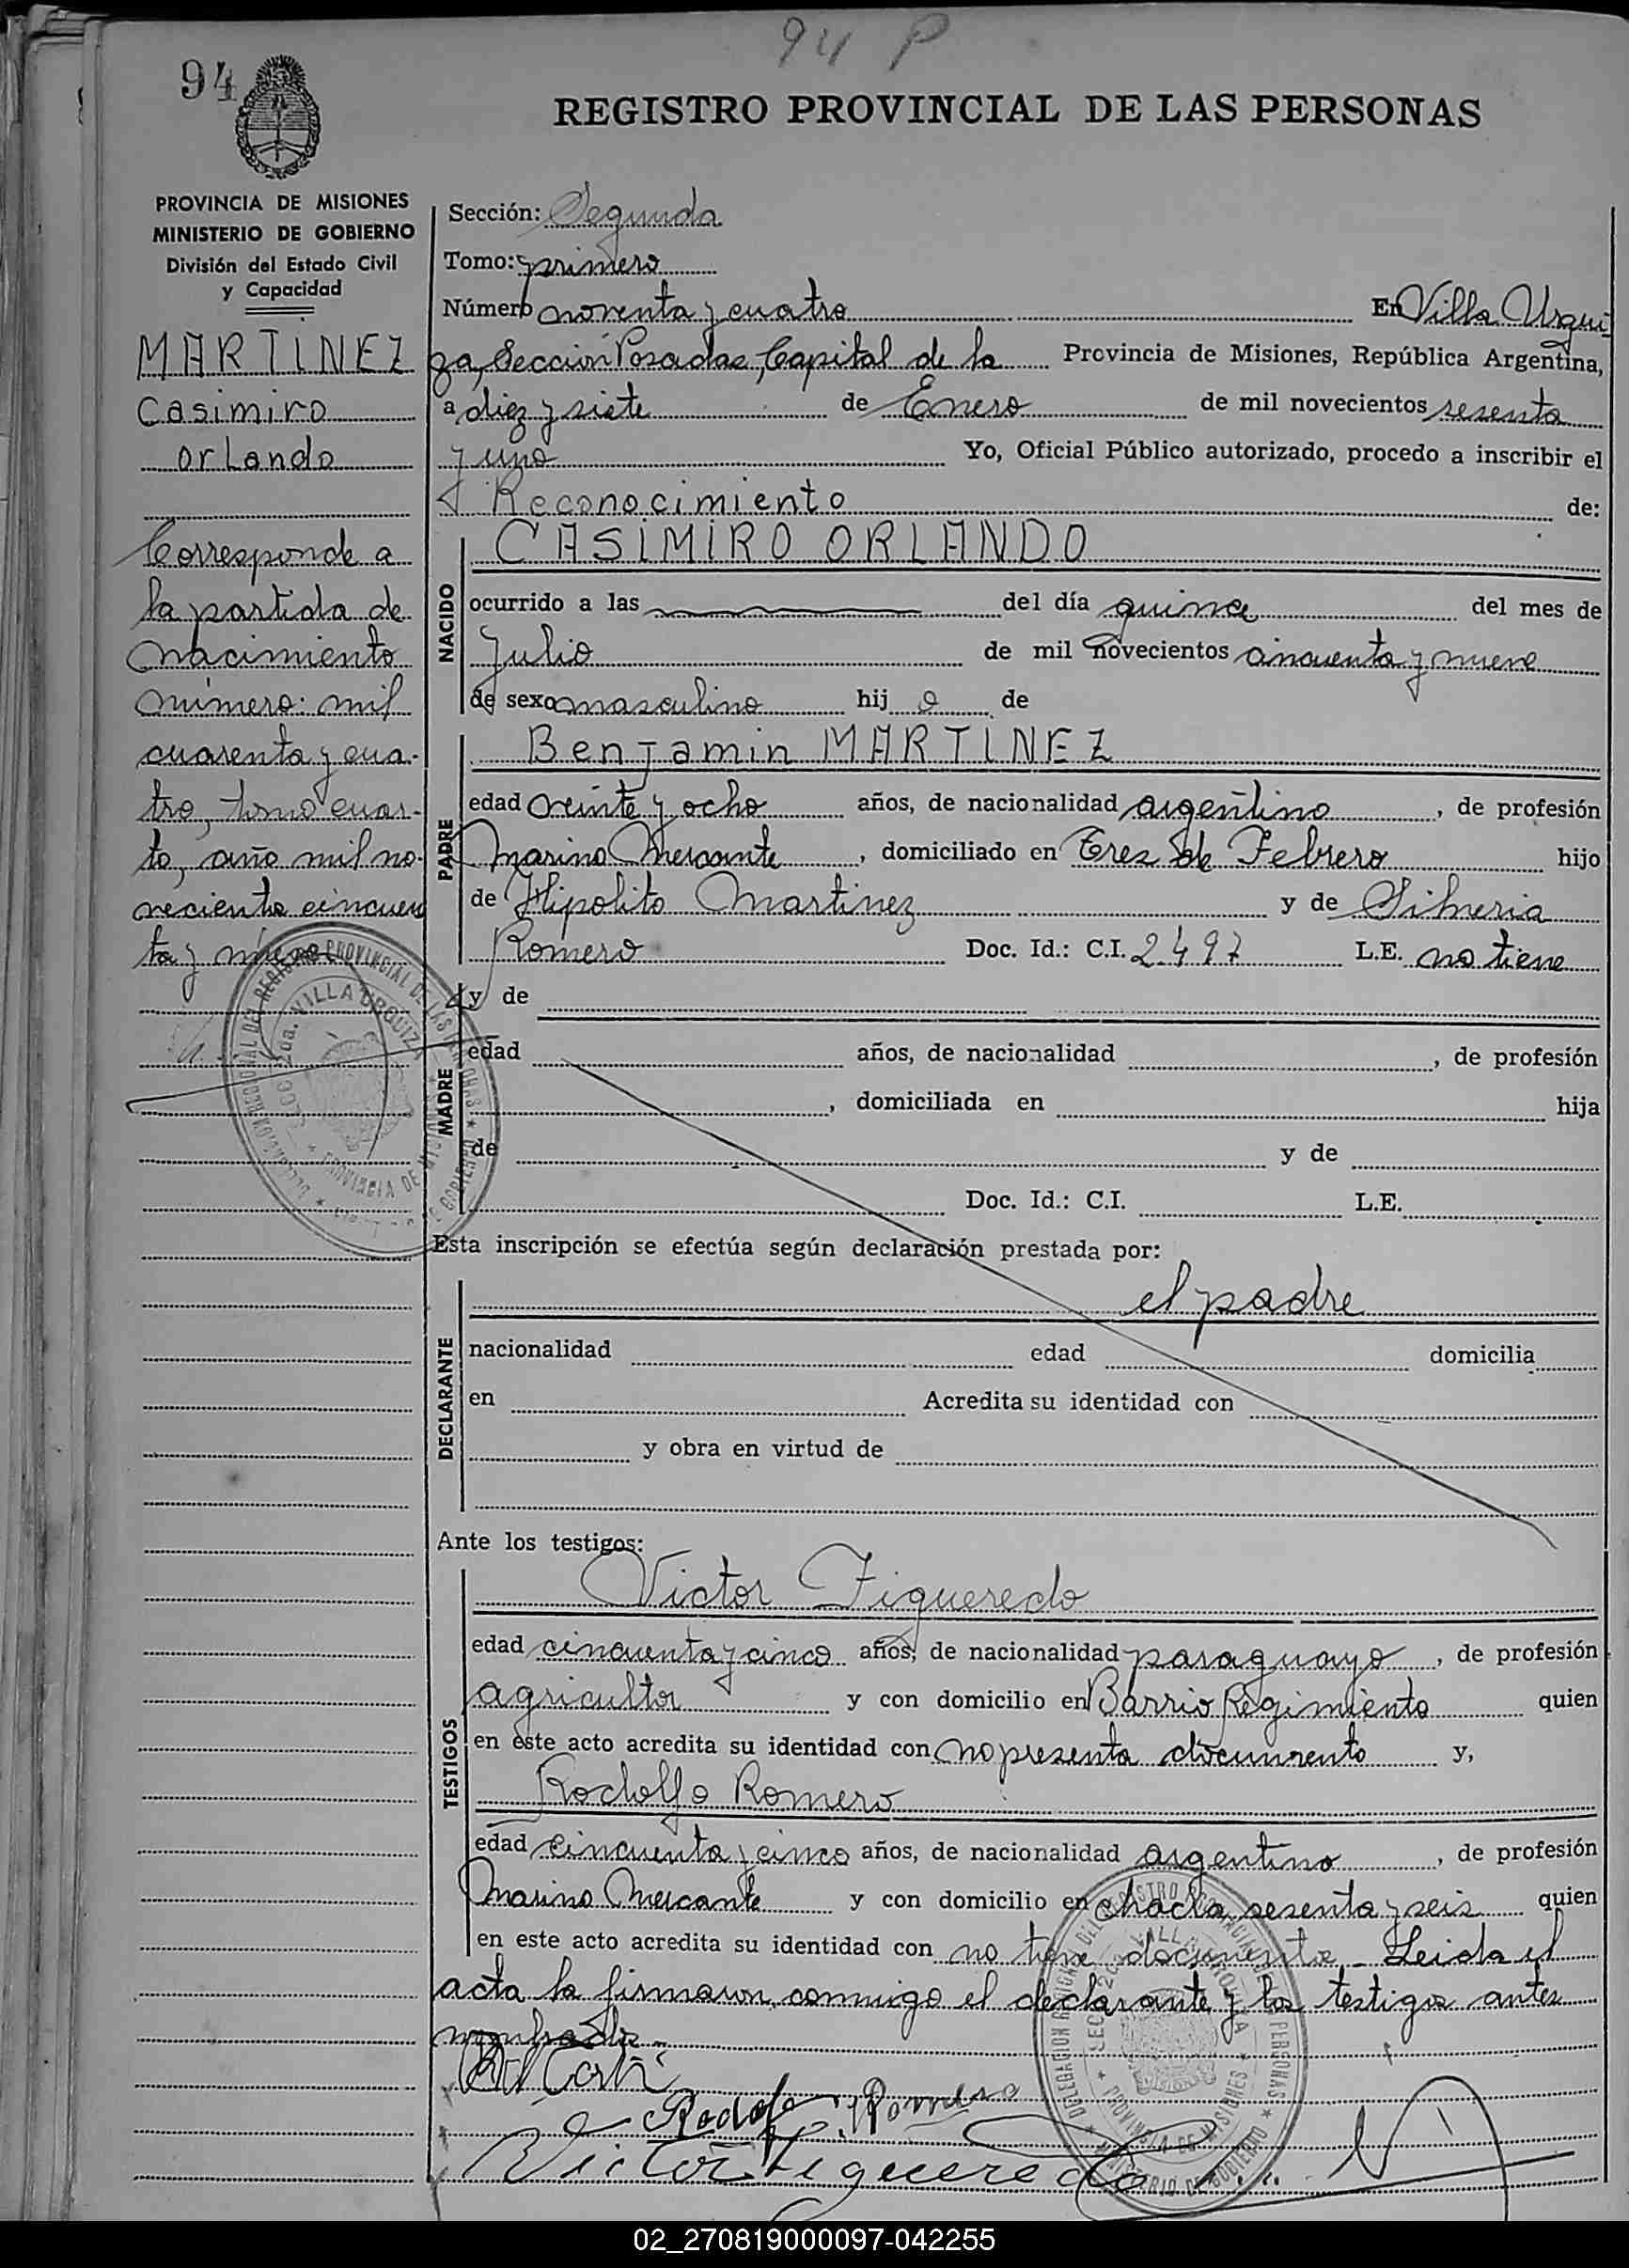 94 P
94
REGISTRO PROVINCIAL DE LAS PERSONAS
PROVINCIA DE MISIONES
MINISTERIO DE GOBIERNO
División del Estado Civil
y Capacidad
MARTINEZ
Casimiro
orlando
Corresponde a
la partida de
nacimiento
número: mil
cuarenta y cua-
tro, tomo cuar-
to, año mil no-
veciento cincuen
ta y nueve
Sección: Segunda
Tomo: primero
Número noventa y cuatro En Villa Urqui
za, Sección Posadas, Capital de la Provincia de Misiones, República Argentina,
a diez y siete de Enero de mil novecientos sesenta
y uno Yo, Oficial Público autorizado, procedo a inscribir el
Reconocimiento de:
NACIDO
CASIMIRO ORLANDO
ocurrido a las del día quince del mes de
Julio de mil novecientos cincuenta y nueve
de sexo masculino hij o de
PADRE
Benjamin MARTINEZ
edad veinte y ocho años, de nacionalidad argentino, de profesión
Marino Mercante, domiciliado en Tres de Febrero hijo
de Hipolito Martinez y de Silveria
Romero Doc. Id.: C.I. 2497 L.E. no tiene
MADRE
y de
edad años, de nacionalidad , de profesión
, domiciliada en hija
de y de
Doc. Id.: C.I. L.E.
Esta inscripción se efectúa según declaración prestada por:
DECLARANTE
el padre
nacionalidad edad domicilia
en Acredita su identidad con
y obra en virtud de
Ante los testigos:
TESTIGOS
Victor Figueredo
edad cincuenta y cinco años, de nacionalidad paraguayo, de profesión
agricultor y con domicilio en Barrio Regimiento quien
en este acto acredita su identidad con no presenta documento y,
Rodolfo Romero
edad cincuenta y cinco años, de nacionalidad argentino, de profesión
Marino Mercante y con domicilio en chacra sesenta y seis quien
en este acto acredita su identidad con no tiene documento. Leida el
acta la firmaron conmigo el declarante y los testigos antes
nombrados.-
Rodolfo Romero
Victor Figueredo
DELEGACION REGIONAL DEL REGISTRO PROVINCIAL DE LAS PERSONAS
SECC. 2da. VILLA URQUIZA
PROVINCIA DE MISIONES
MINISTERIO DE GOBIERNO
02_270819000097-042255